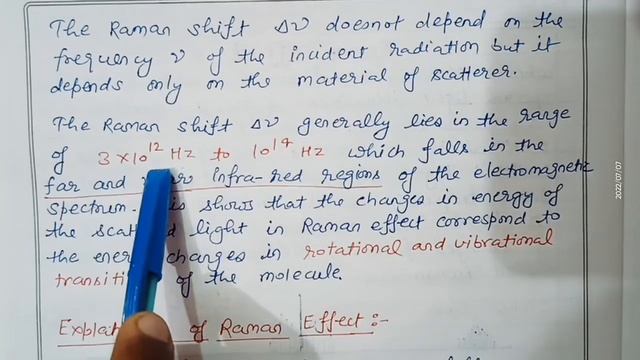 The Raman shift Δν doesnot depend on the
frequency ν of the incident radiation but it
depends only on the material of scatterer.
The Raman shift Δν generally lies in the range
of 3 × 10¹² Hz to 10¹⁴ Hz which falls in the
far and Infra-red regions of the electromagnetic
spectrum. shows that the changes in energy of
the light in Raman effect correspond to
the changes in rotational and vibrational
of the molecule.
of Raman Effect :-
2022/07/07